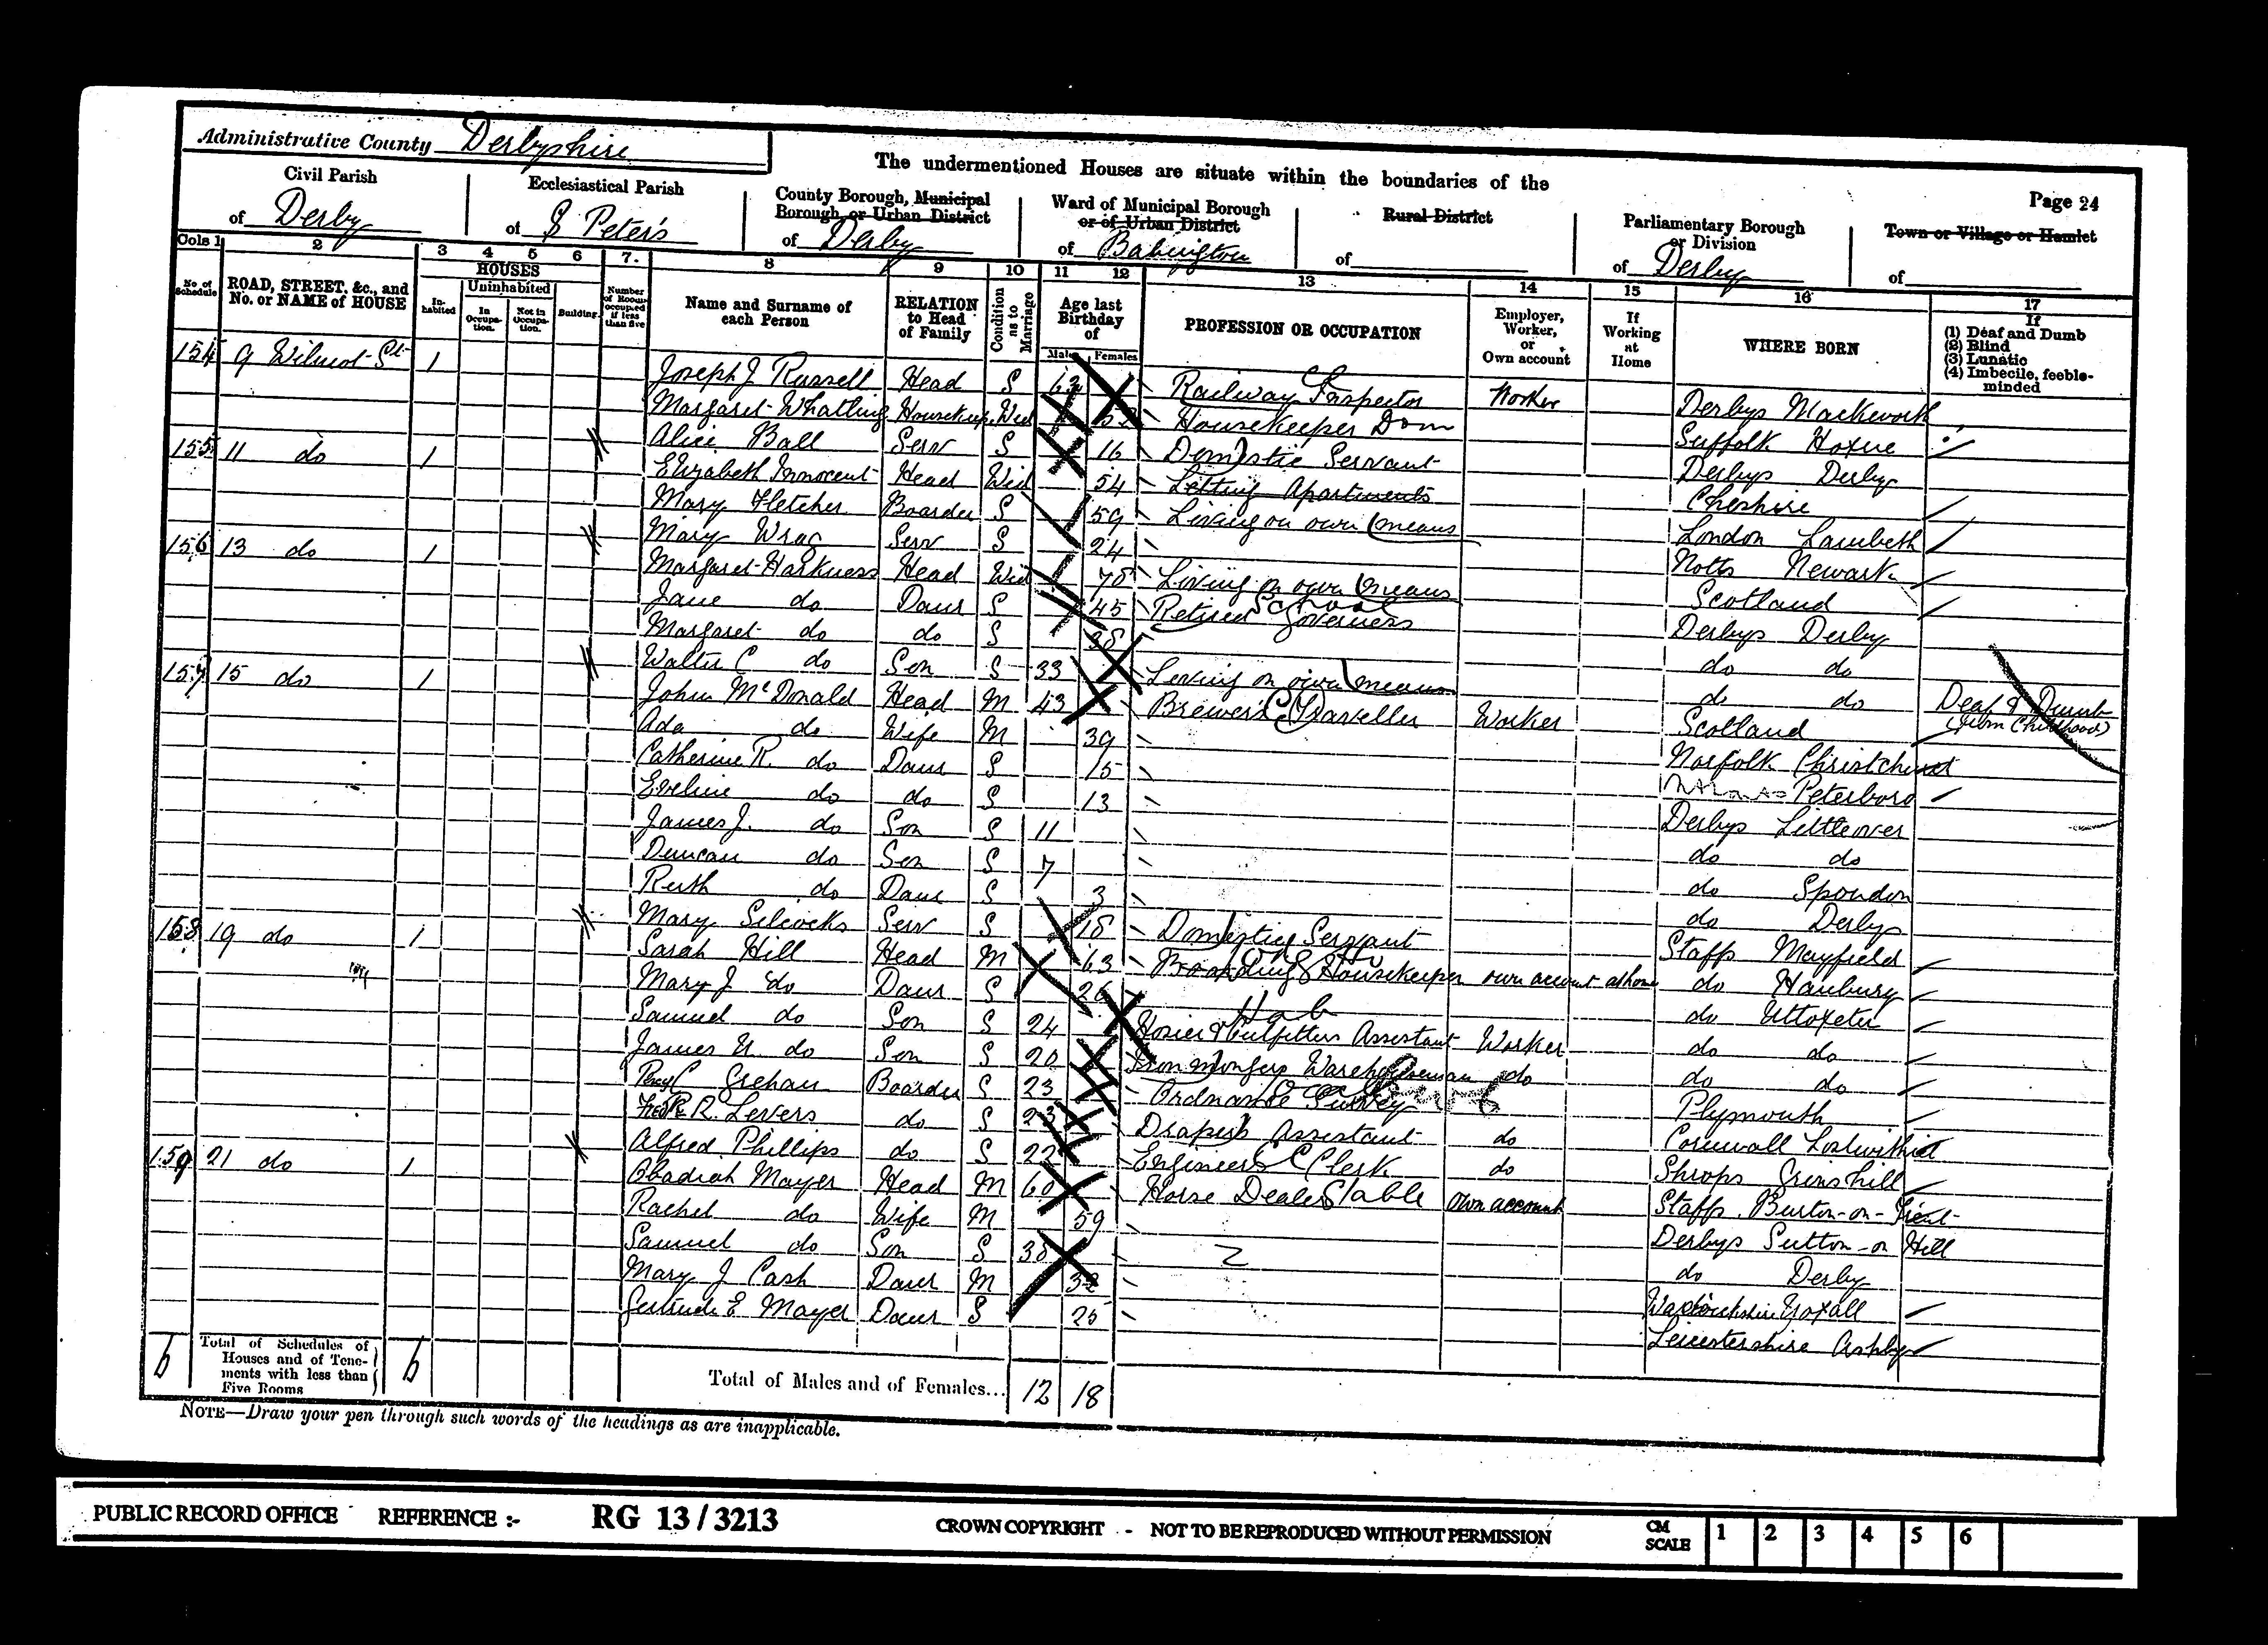 Administrative County Derbyshire
The undermentioned Houses are situate within the boundaries of the
Page 24
Civil Parish of Derby
Ecclesiastical Parish of S Peter's
County Borough, Municipal Borough or Urban District of Derby
Ward of Municipal Borough or of Urban District of Babington
Rural District of
Parliamentary Borough or Division of Derby
Town or Village or Hamlet of
Cols 1 2 3 4 5 6 7. 8 9 10 11 12 13 14 15 16 17
No of Schedule
ROAD, STREET. &c., and No. or NAME of HOUSE
HOUSES
In-habited
Uninhabited
In Occupa-tion.
Not in Occupa-tion.
Building.
Number of Rooms occupied if less than five
Name and Surname of each Person
RELATION to Head of Family
Condition as to Marriage
Age last Birthday of
Males Females
PROFESSION OR OCCUPATION
Employer, Worker, or Own account
If Working at Home
WHERE BORN
If
(1) Deaf and Dumb
(2) Blind
(3) Lunatic
(4) Imbecile, feeble-minded
154 9 Wilmot St 1 Joseph J Russell Head S 62 Railway Inspector Worker Derbys Mackworth
Margaret Whatling Housekeep. Wid 52 Housekeeper Dom Suffolk Hoxne
Alice Ball Serv S 16 Domestic Servant Derbys Derby
155 11 do 1 Elizabeth Innocent Head Wid 54 Letting Apartments Cheshire
Mary Fletcher Boarder S 59 Living on own means London Lambeth
Mary Wrag Serv S 24 Notts Newark
156 13 do 1 Margaret Harkness Head Wid 78 Living on own means Scotland
Jane do Daur S 45 Retired School Governess Derbys Derby
Margaret do do S 38 do do
Walter C do Son S 33 Living on own means do do Deaf & Dumb (from Childhood)
157 15 do 1 John McDonald Head M 43 Brewer's Traveller Worker Scotland
Ada do Wife M 39 Norfolk Christchurch
Catherine R. do Daur S 15 Peterboro
Eveline do do S 13 Derbys Littleover
James J. do Son S 11 do do
Duncan do Son S 7 do Spondon
Ruth do Daur S 3 do Derby
Mary Silcocks Serv S 18 Domestic Servant Staffs Mayfield
158 19 do 1 Sarah Hill Head M 63 Boarding Housekeeper own account at home do Hanbury
Mary J do Daur S 26 do Uttoxeter
Samuel do Son S 24 Hosier & Outfitters Assistant Worker do do
James do Son S 20 Iron mongers Warehouseman do do do
Percy C Grehan Boarder S 23 Ordnance Survey Plymouth
Fredk R. Levers do S 23 Draper's Assistant do Cornwall Lostwithiel
Alfred Phillips do S 22 Engineers Clerk do Shrops Grinshill
159 21 do 1 Obadiah Mayer Head M 60 Horse Dealer Stable own account Staffs. Burton-on-Trent
Rachel do Wife M 59 Derbys Sutton-on Hill
Samuel do Son S 38 do Derby
Mary J Cash Daur M 32 Yoxall
Gertrude E Mayer Daur S 25 Leicestershire Ashby
6 Total of Schedules of Houses and of Tene-ments with less than Five Rooms 6
Total of Males and of Females... 12 18
NOTE—Draw your pen through such words of the headings as are inapplicable.
PUBLIC RECORD OFFICE REFERENCE :- RG 13/3213
CROWN COPYRIGHT - NOT TO BE REPRODUCED WITHOUT PERMISSION
CM SCALE 1 2 3 4 5 6